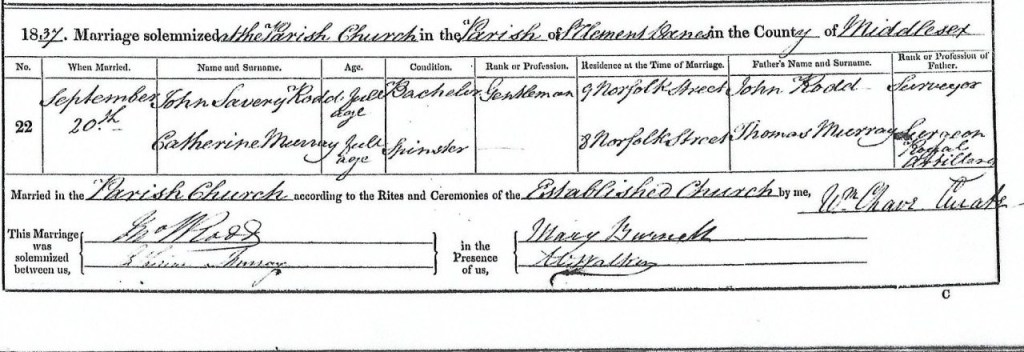 1837. Marriage solemnized at the Parish Church in the Parish of St Clement Danes in the County of Middlesex
No. When Married. Name and Surname. Age. Condition. Rank or Profession. Residence at the Time of Marriage. Father's Name and Surname. Rank or Profession of Father.
22
September 20.th
John Savery Rodd Full age Bachelor Gentleman 9 Norfolk Street John Rodd Surveyor
Catherine Murray Full age Spinster 8 Norfolk Street Thomas Murray Surgeon Royal Artillery
Married in the Parish Church according to the Rites and Ceremonies of the Established Church by me, Wm Chave Curate
This Marriage was solemnized between us,
Rodd
Murray
in the Presence of us,
Mary Burnett
C